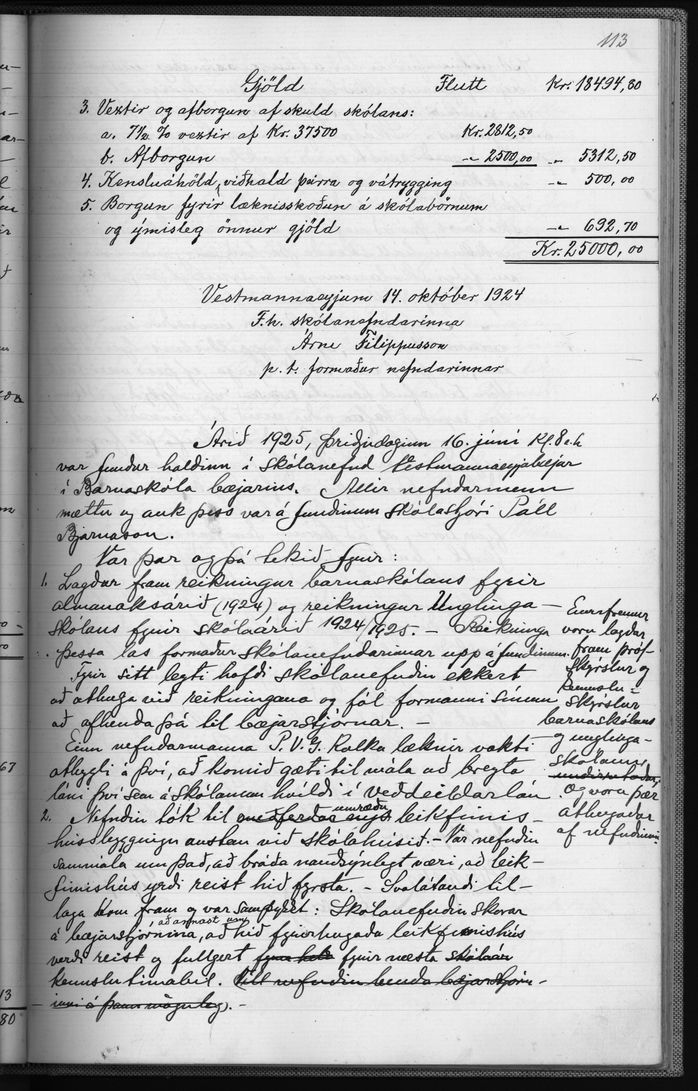 113
Gjöld Flutt Kr. 18494,80
3. Vextir og afborgun af skuld skólans:
a. 7½ % vextir af Kr. 37500 Kr. 2812,50
b. Afborgun -"- 2500,00 -"- 5312,50
4. Kensluáhöld, viðhald þeirra og vátrygging -"- 500,00
5. Borgun fyrir læknisskoðun á skólabörnum
og ýmisleg önnur gjöld -"- 692,70
Kr. 25000,00
Vestmannaeyjum 14. október 1924
F.h. skólanefndarinna
Árni Filippusson
p.t. formaður nefndarinnar
Árið 1925, þriðjudaginn 16. júní kl. 8 e.h
var fundur haldinn í skólanefnd Vestmannaeyjabæjar
í Barnaskóla bæjarins. Allir nefndarmenn
mættu og auk þess var á fundinum skólastjóri Páll
Bjarnason.
Var þar og þá tekið fyrir:
1. Lagður fram reikningur barnaskólans fyrir
almanaksárið (1924) og reikningur Unglinga-
skólans fyrir skólaárið 1924/1925. – Reikninga
þessa las formaður skólanefndarinnar upp á fundinum.
Fyrir sitt leyti hafði skólanefndin ekkert
að athuga við reikningana og fól formanni sínum
að afhenda þá til bæjarstjórnar. –
Einn nefndarmanna P.V.G. Kolka læknir vakti
athygli á því, að komið gæti til mála að breyta
láni því sem á skólanum hvíldi í veðdeildarlán.
Ennfremur
voru lagðar
fram próf-
skýrslur og
kennslu-
skýrslur
barnaskólans
og unglinga-
skólans
og voru þær
athugaðar
af nefndinni.
2. Nefndin tók til umræðu leikfimis-
hússbyggingu austan við skólahúsið. – Var nefndin
sammála um það, að bráða nauðsynlegt væri, að leik-
fimishús yrði reist hið fyrsta. – Svolátandi til-
laga kom fram og var samþykt: Skólanefndin skorar
á bæjarstjórnina, að annast um, að hið fyrirhugaða leikfimishús
verði reist og fullgert fyrir næsta skólaár
kennslutímabil. Vill nefndin benda bæjarstjórn-
inni á